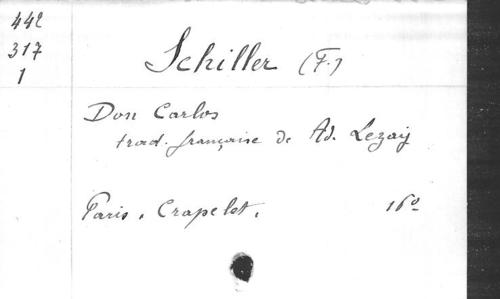 442
317
1
Schiller (F.)
Don Carlos
trad. française de Ad. Lezay
Paris, Crapelet, 16º